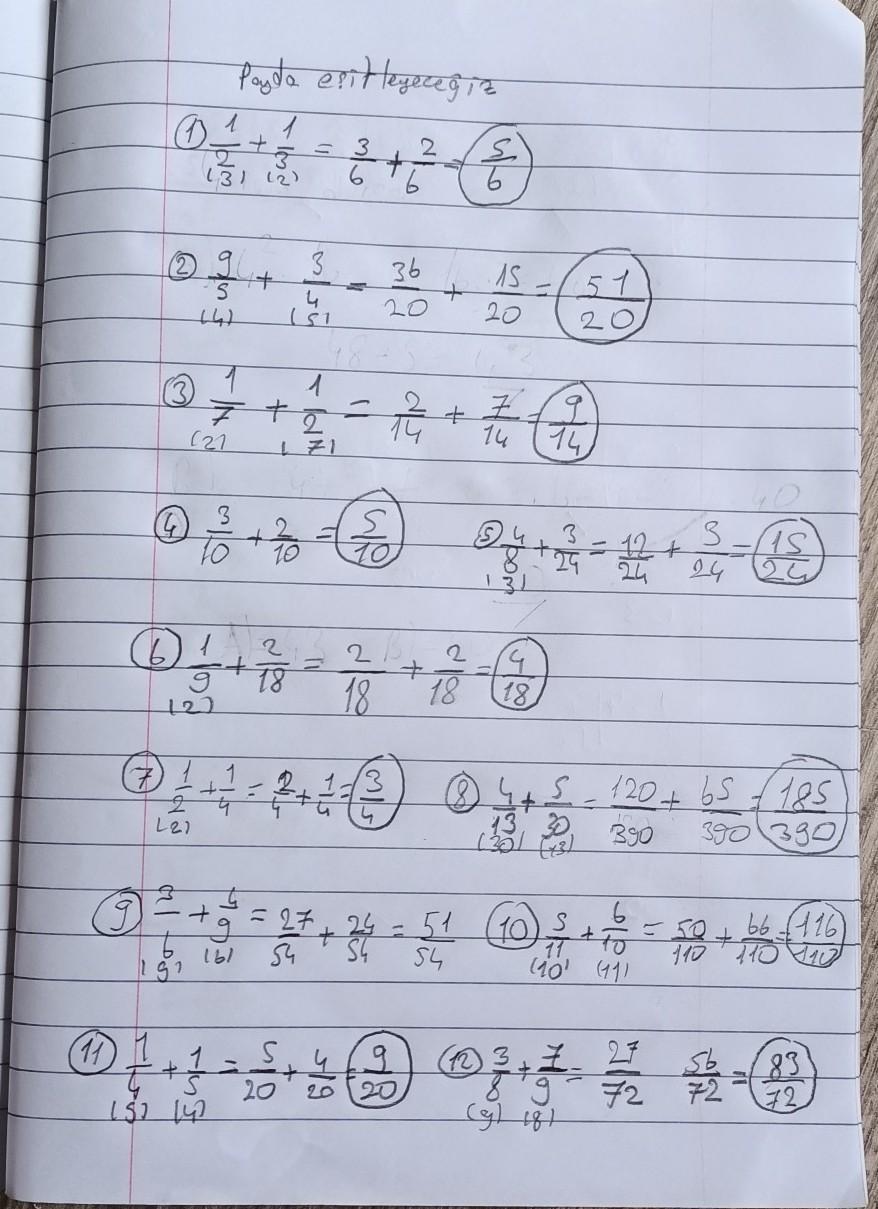 Payda eşitleyeceğiz
① 1/2 + 1/3 = 3/6 + 2/6 = 5/6
(3) (2)
② 9/5 + 3/4 = 36/20 + 15/20 = 51/20
(4) (5)
③ 1/7 + 1/2 = 2/14 + 7/14 = 9/14
(2) (7)
④ 3/10 + 2/10 = 5/10
⑤ 4/8 + 3/24 = 12/24 + 3/24 = 15/24
(3)
⑥ 1/9 + 2/18 = 2/18 + 2/18 = 4/18
(2)
⑦ 1/2 + 1/4 = 2/4 + 1/4 = 3/4
(2)
⑧ 4/13 + 5/30 = 120/390 + 65/390 = 185/390
(30) (13)
⑨ 3/6 + 4/9 = 27/54 + 24/54 = 51/54
(9) (6)
⑩ 5/11 + 6/10 = 50/110 + 66/110 = 116/110
(10) (11)
⑪ 1/4 + 1/5 = 5/20 + 4/20 = 9/20
(5) (4)
⑫ 3/8 + 7/9 = 27/72 56/72 = 83/72
(9) (8)